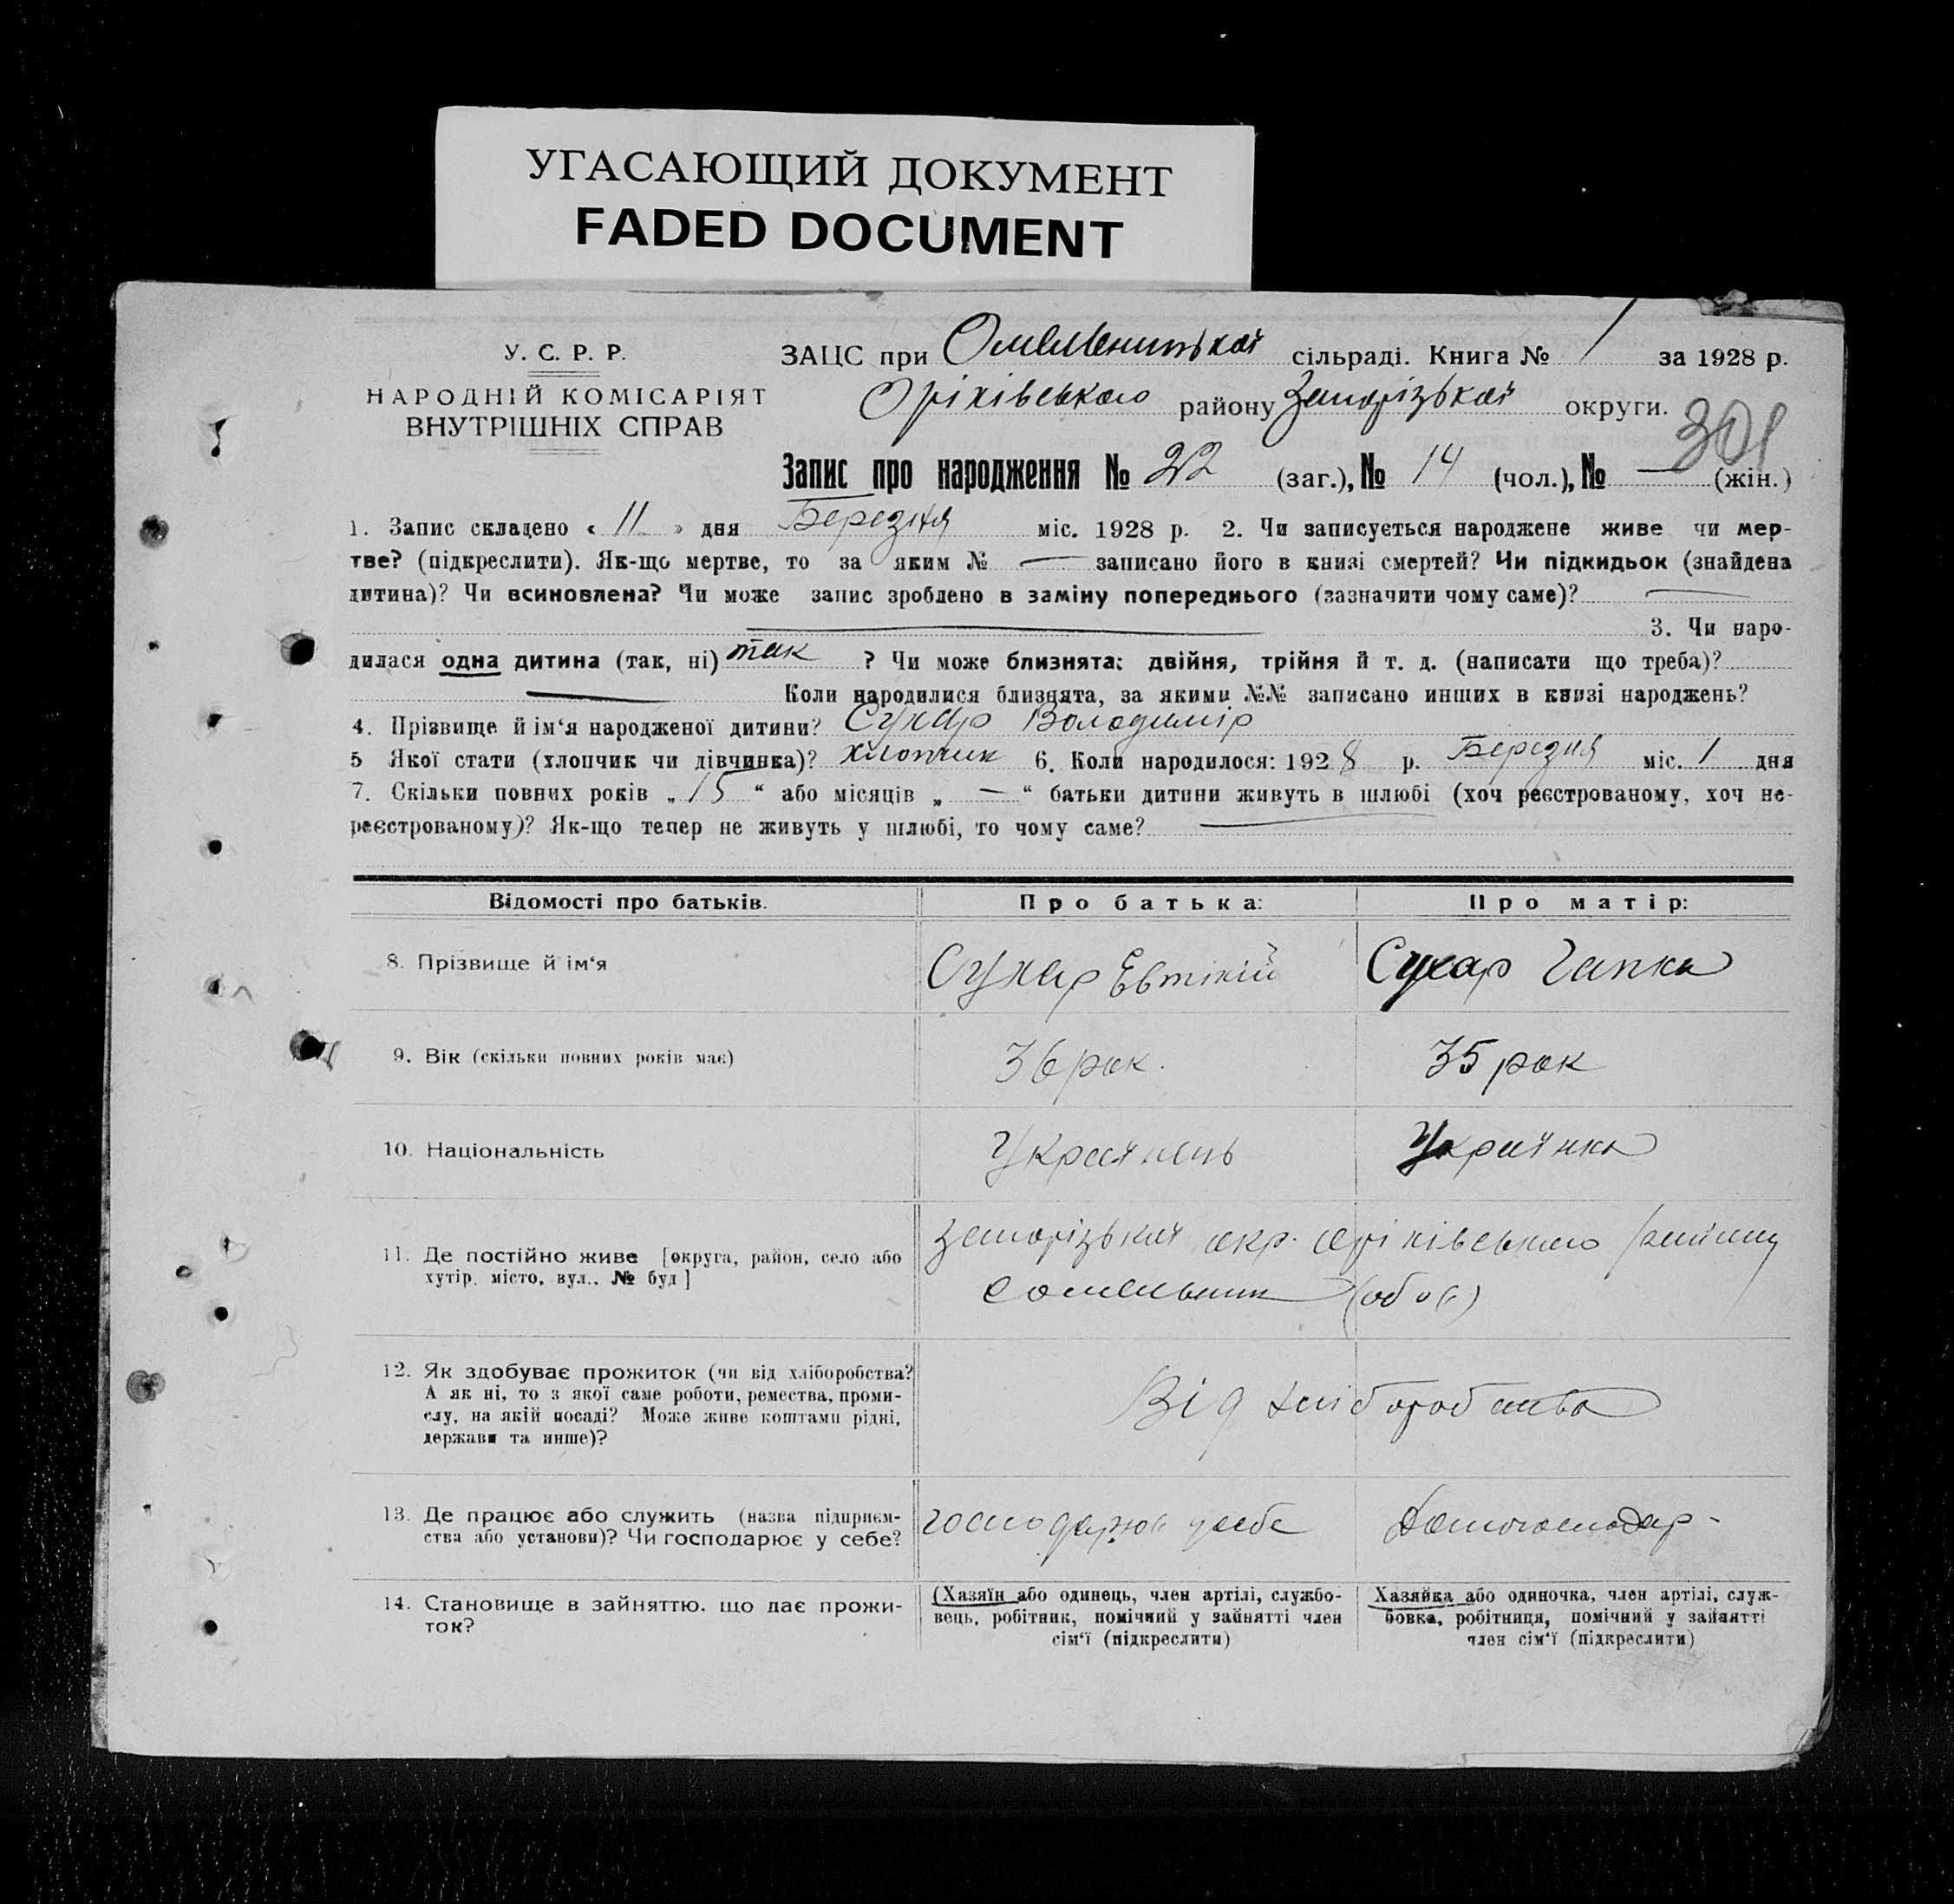 УГАСАЮЩИЙ ДОКУМЕНТ
FADED DOCUMENT
У. С. Р. Р.
НАРОДНІЙ КОМІСАРІЯТ
ВНУТРІШНІХ СПРАВ
ЗАЦС при Омельницької сільраді. Книга № 1 за 1928 р.
Оріхівського району Запорізької округи.
301
Запис про народження № 22 (заг.), № 14 (чол.), № — (жін.)
1. Запис складено « 11 » дня Березня міс. 1928 р. 2. Чи записується народжене живе чи мер-
тве? (підкреслити). Як-що мертве, то за яким № — записано його в книзі смертей? Чи підкидьок (знайдена
дитина)? Чи всиновлена? Чи може запис зроблено в заміну попереднього (зазначити чому саме)? —
— 3. Чи наро-
дилася одна дитина (так, ні) так ? Чи може близнята: двійня, трійня й т. д. (написати що треба)?
— Коли народилися близнята, за якими №№ записано инших в книзі народжень?
4. Прізвище й ім‘я народженої дитини? Сухар Володимір
5 Якої стати (хлопчик чи дівчинка)? хлопчик 6. Коли народилося: 1928 р. Березня міс. 1 дня
7. Скільки повних років „ 15 “ або місяців „ — “ батьки дитини живуть в шлюбі (хоч реєстрованому, хоч не-
реєстрованому)? Як-що тепер не живуть у шлюбі, то чому саме? —
Відомості про батьків. Про батька: Про матір:
8. Прізвище й ім‘я Сухар Евтіхій Сухар Гапка
9. Вік (скільки повних років має) 36 рок. 35 рок
10. Національність Українець Українка
11. Де постійно живе [округа, район, село або
хутір, місто, вул., № буд ]
Запорізької окр. Оріхівського району
с Омельник (обоє)
12. Як здобуває прожиток (чи від хліборобства?
А як ні, то з якої саме роботи, ремества, проми-
слу, на якій посаді? Може живе коштами рідні,
держави та инше)?
Від хліборобства
13. Де працює або служить (назва підприєм-
ства або установи)? Чи господарює у себе?
господарює у себе Домогосподар-
14. Становище в зайняттю, що дає прожи-
ток?
(Хазяїн або одинець, член артілі, службо-
вець, робітник, помічний у зайнятті член
сім‘ї (підкреслити)
Хазяйка або одиночка, член артілі, служ-
бовка, робітниця, помічний у зайнятті
член сім‘ї (підкреслити)